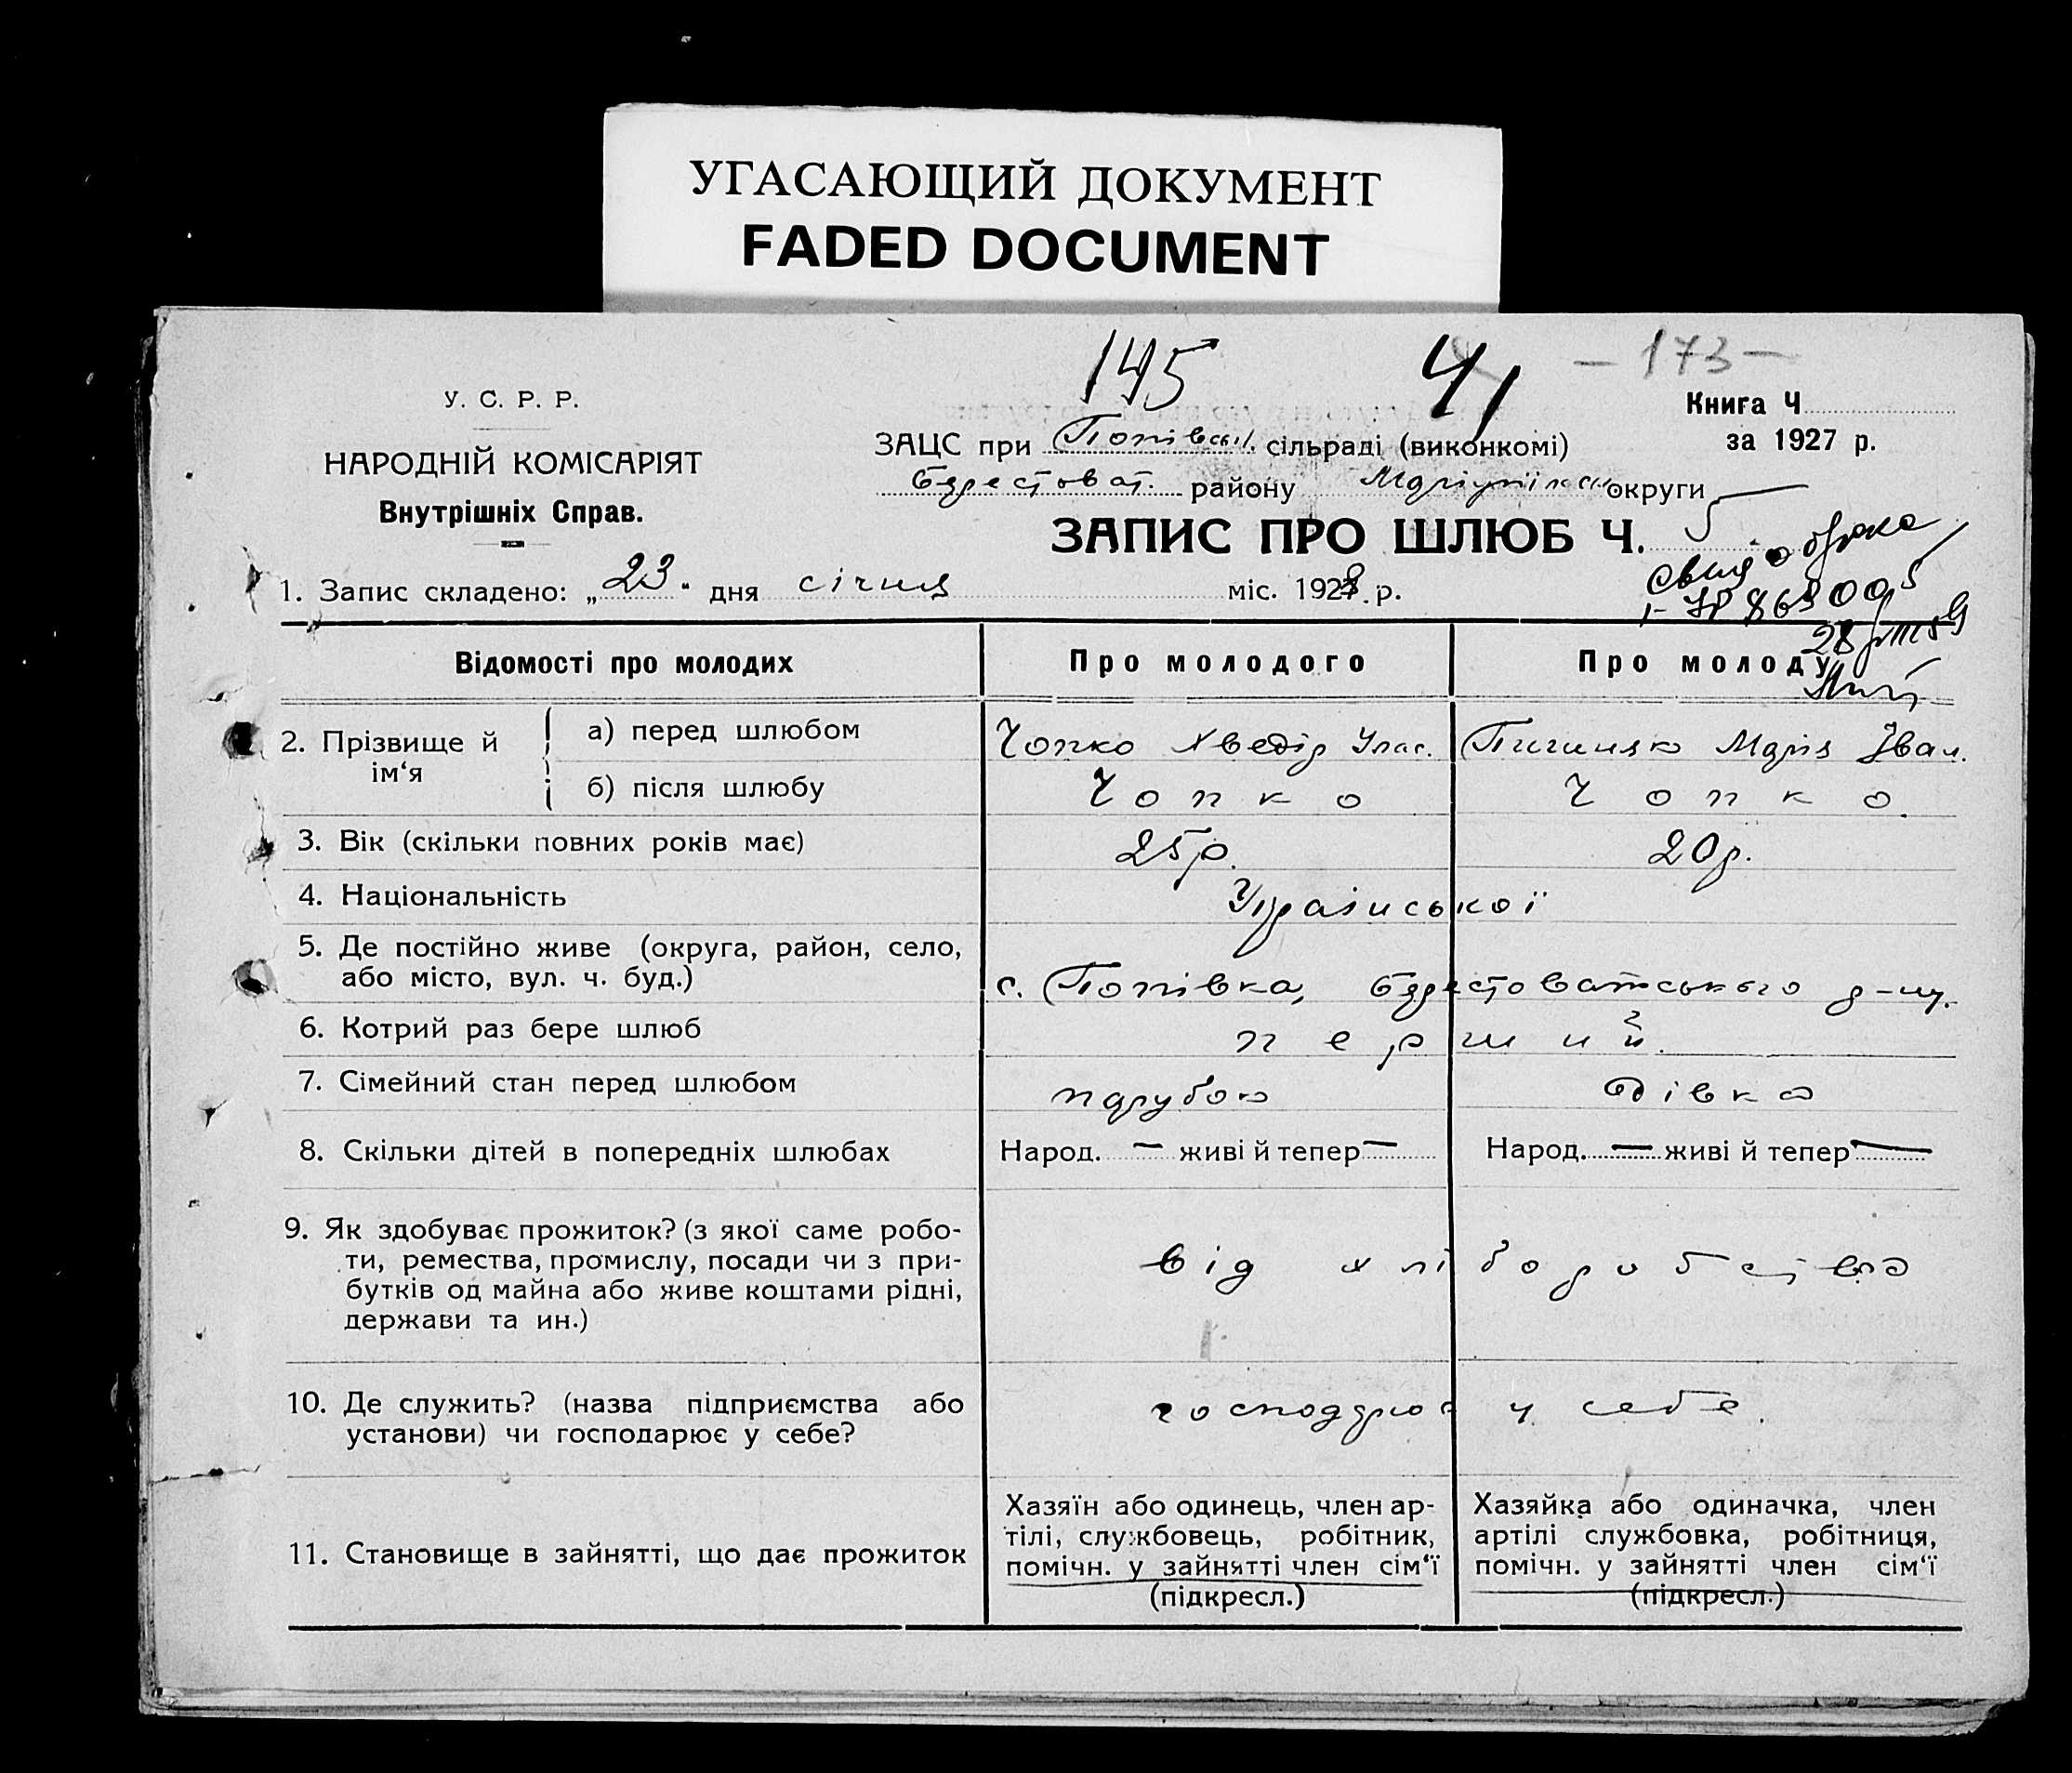 УГАСАЮЩИЙ ДОКУМЕНТ
FADED DOCUMENT
145 41 - 173 -
У. С. Р. Р.
НАРОДНІЙ КОМІСАРІЯТ
Внутрішніх Справ.
Книга Ч
за 1927 р.
ЗАЦС при Попівськ. сільраді (виконкомі)
Берестоват. району округи
ЗАПИС ПРО ШЛЮБ Ч. 5
1. Запис складено: „23" дня січня міс. 1928 р.
Відомості про молодих
Про молодого
Про молоду
2. Прізвище й ім'я
а) перед шлюбом
Чопко Хведір Улас.
Марія Іван.
б) після шлюбу
Чопко
Чопко
3. Вік (скільки повних років має)
25 р.
20 р.
4. Національність
Української
5. Де постійно живе (округа, район, село,
або місто, вул. ч. буд.)
с. Попівка, р-ну.
6. Котрий раз бере шлюб
перший
7. Сімейний стан перед шлюбом
парубок
дівка
8. Скільки дітей в попередніх шлюбах
Народ. — живі й тепер —
Народ. — живі й тепер —
9. Як здобуває прожиток? (з якої саме робо-
ти, ремества, промислу, посади чи з при-
бутків од майна або живе коштами рідні,
держави та ин.)
від хліборобства
10. Де служить? (назва підприємства або
установи) чи господарює у себе?
господарює у себе.
11. Становище в зайнятті, що дає прожиток
Хазяїн або одинець, член ар-
тілі, службовець, робітник,
помічн. у зайнятті член сім'ї
(підкресл.)
Хазяйка або одиначка, член
артілі службовка, робітниця,
помічн. у зайнятті член сім'ї
(підкресл.)